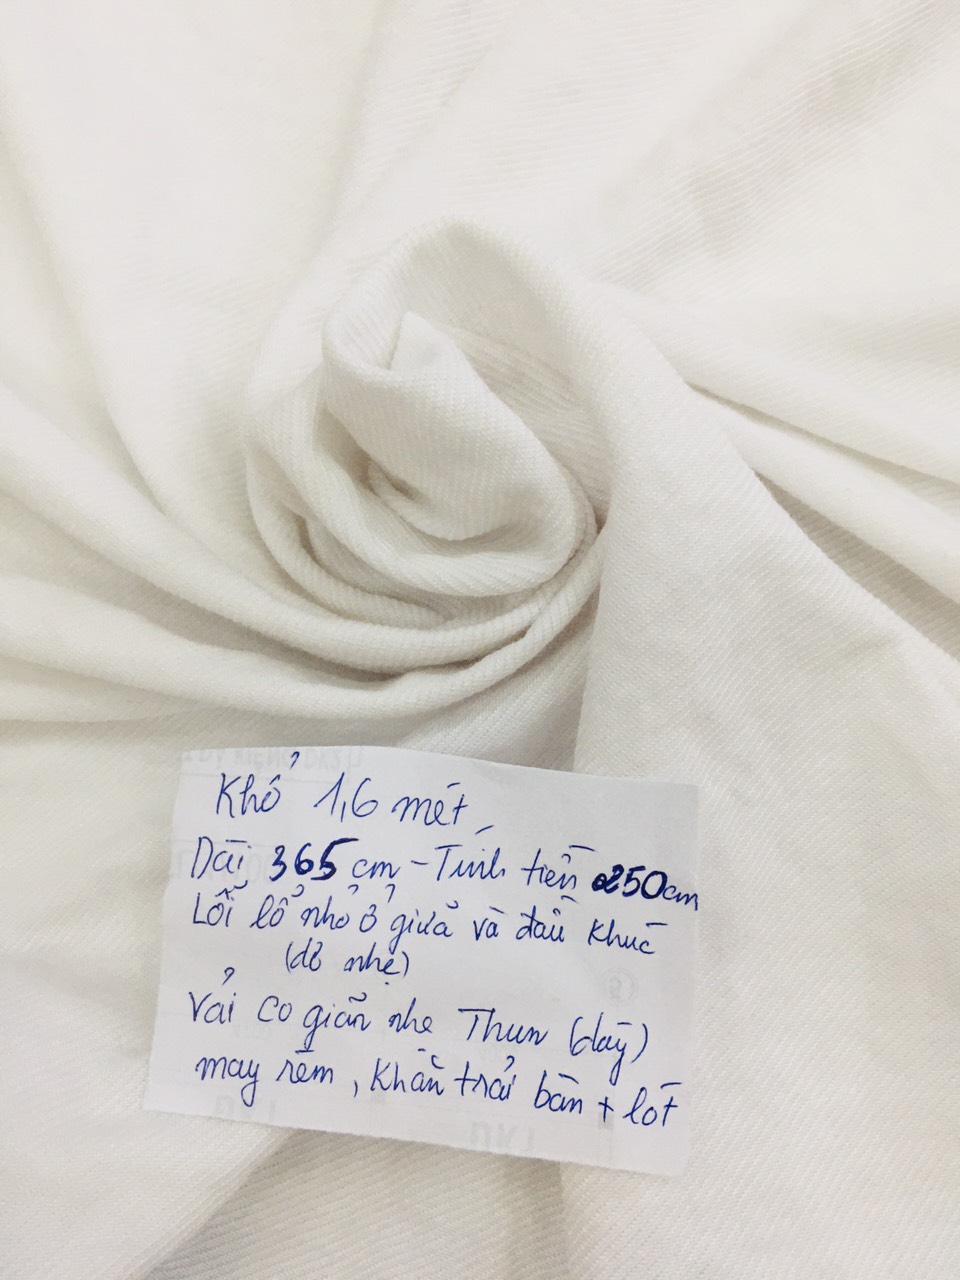 Khổ 1,6 mét
Dài 365 cm - Tính tiền 250cm
Lỗi lổ nhỏ ở giữa và đầu khúc
(dơ nhẹ)
Vải co giãn nhẹ Thun (dày)
may rèm, khăn trải bàn + lót
DKT